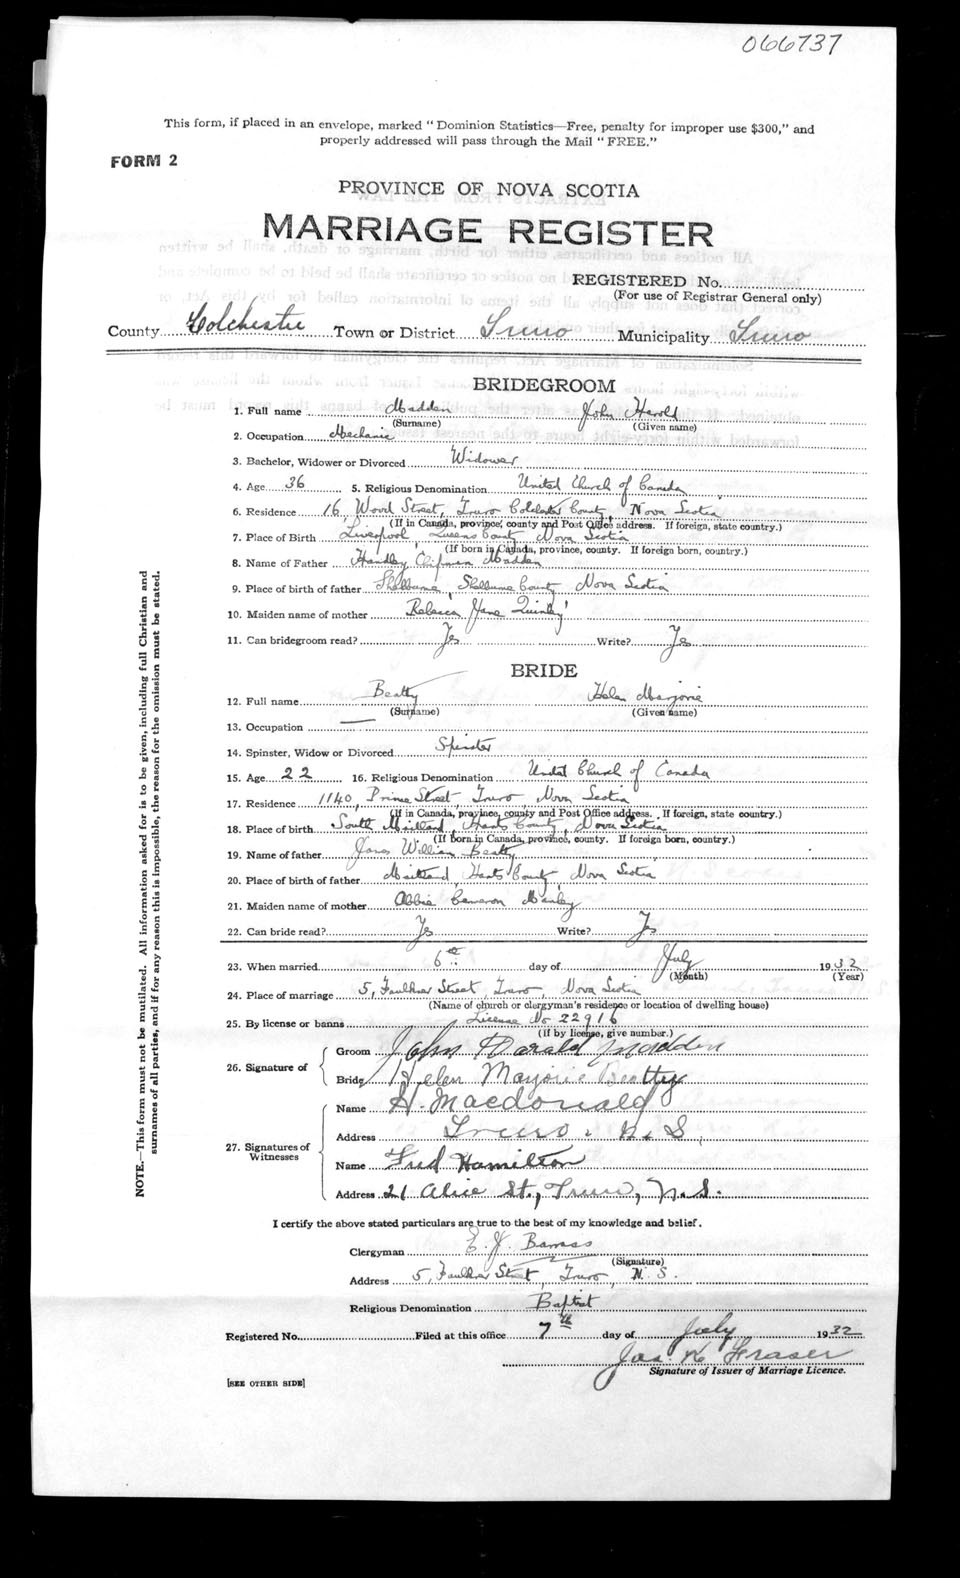 066737
This form, if placed in an envelope, marked "Dominion Statistics—Free, penalty for improper use $300," and
properly addressed will pass through the Mail "FREE."
FORM 2
PROVINCE OF NOVA SCOTIA
MARRIAGE REGISTER
REGISTERED No.
(For use of Registrar General only)
County Colchester Town or District Truro Municipality Truro
BRIDEGROOM
1. Full name Madden John Harold
(Surname) (Given name)
2. Occupation Mechanic
3. Bachelor, Widower or Divorced Widower
4. Age 36 5. Religious Denomination United Church of Canada
6. Residence 16, Wood Street, Truro Colchester County, Nova Scotia
(If in Canada, province, county and Post Office address. If foreign, state country.)
7. Place of Birth Liverpool, Queens County, Nova Scotia
(If born in Canada, province, county. If foreign born, country.)
8. Name of Father Handley Chipman Madden
9. Place of birth of father Shelburne, Shelburne County, Nova Scotia
10. Maiden name of mother Rebecca Jane Quinley
11. Can bridegroom read? Yes Write? Yes
BRIDE
12. Full name Beatty Helen Marjorie
(Surname) (Given name)
13. Occupation —
14. Spinster, Widow or Divorced Spinster
15. Age 22 16. Religious Denomination United Church of Canada
17. Residence 1140, Prince Street, Truro, Nova Scotia
(If in Canada, province, county and Post Office address. If foreign, state country.)
18. Place of birth South Maitland, Hants County, Nova Scotia
(If born in Canada, province, county. If foreign born, country.)
19. Name of father James William Beatty
20. Place of birth of father Maitland, Hants County, Nova Scotia
21. Maiden name of mother Abbie Cameron Manley
22. Can bride read? Yes Write? Yes
23. When married 6th day of July 1932
(Month) (Year)
24. Place of marriage 5, Faulkner Street, Truro, Nova Scotia
(Name of church or clergyman's residence or location of dwelling house)
25. By license or banns License No 22916
(If by license, give number.)
26. Signature of Groom John Harald Madden
Bride Helen Marjorie Beatty
27. Signatures of Witnesses
Name H. Macdonald
Address Truro. N.S.
Name Fred Hamilton
Address 21 Alice St., Truro, N.S.
I certify the above stated particulars are true to the best of my knowledge and belief.
Clergyman E. J. Barrass
(Signature)
Address 5, Faulkner Street, Truro, N. S.
Religious Denomination Baptist
Registered No. Filed at this office 7th day of July 1932
Jas K Fraser
Signature of Issuer of Marriage Licence.
[SEE OTHER SIDE]
NOTE.—This form must not be mutilated. All information asked for is to be given, including full Christian and
surnames of all parties, and if for any reason this is impossible, the reason for the omission must be stated.